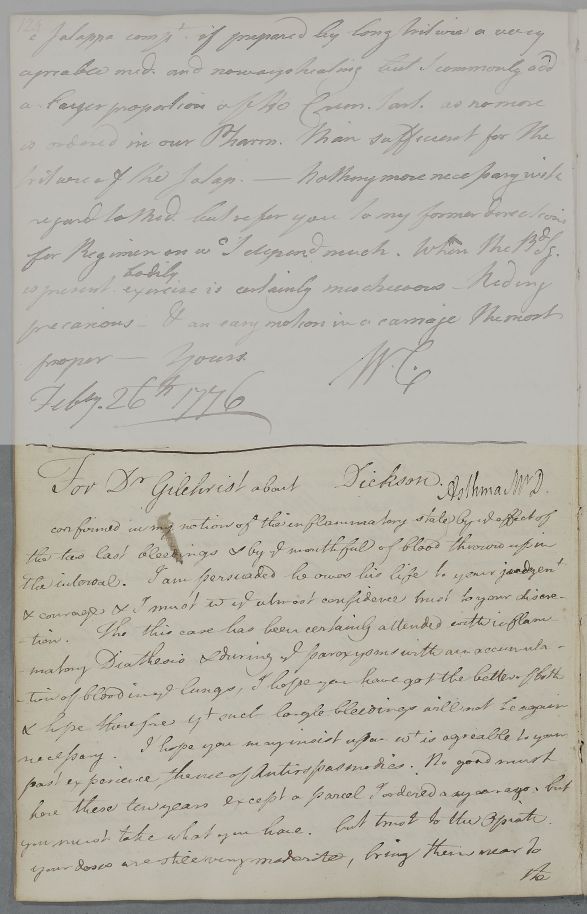 124
e Jalappa comp.t if prepared by long triture a very
agreable med. and noways heating but I commonly add
a larger proportion of the Crem. tart. as no more
is ordered in our Pharm. than sufficient for the
triture of the Jalap. — Nothing more necessary with
regard to Med. but refer you to my former directions
for Regimen on wc I depend much. When the
is present bodily exercise is certainly mischievous — Riding
precarious — & an easy motion in a carriage the most
proper — Yours
W.C.
Feby. 26th 1776
For Dr Gilchrist about Dickson. Asthma Mr D.
confirmed in my notion of the inflammatory state by ye effect of
the two last bleedings & by ye mouthful of blood thrown up in
the interval. I am persuaded he owes his life to your judgent
& courage & I must wt ye utmost confidence trust to your discre-
-tion. Tho this case has been certainly attended with inflam-
-matory Diathesis & during ye paroxysms with an accumula-
-tion of blood in ye lungs, I hope you have got the better of both
& hope therefore yt such large bleedings will not be again
necessary. I hope you may insist upon wt is agreable to your
past experience the use of Antispasmodics. No good must
here these ten years except a parcel I ordered a year ago. but
you must take what you have. but trust to the Opiate.
your doses are still very moderate, bring them near to
the